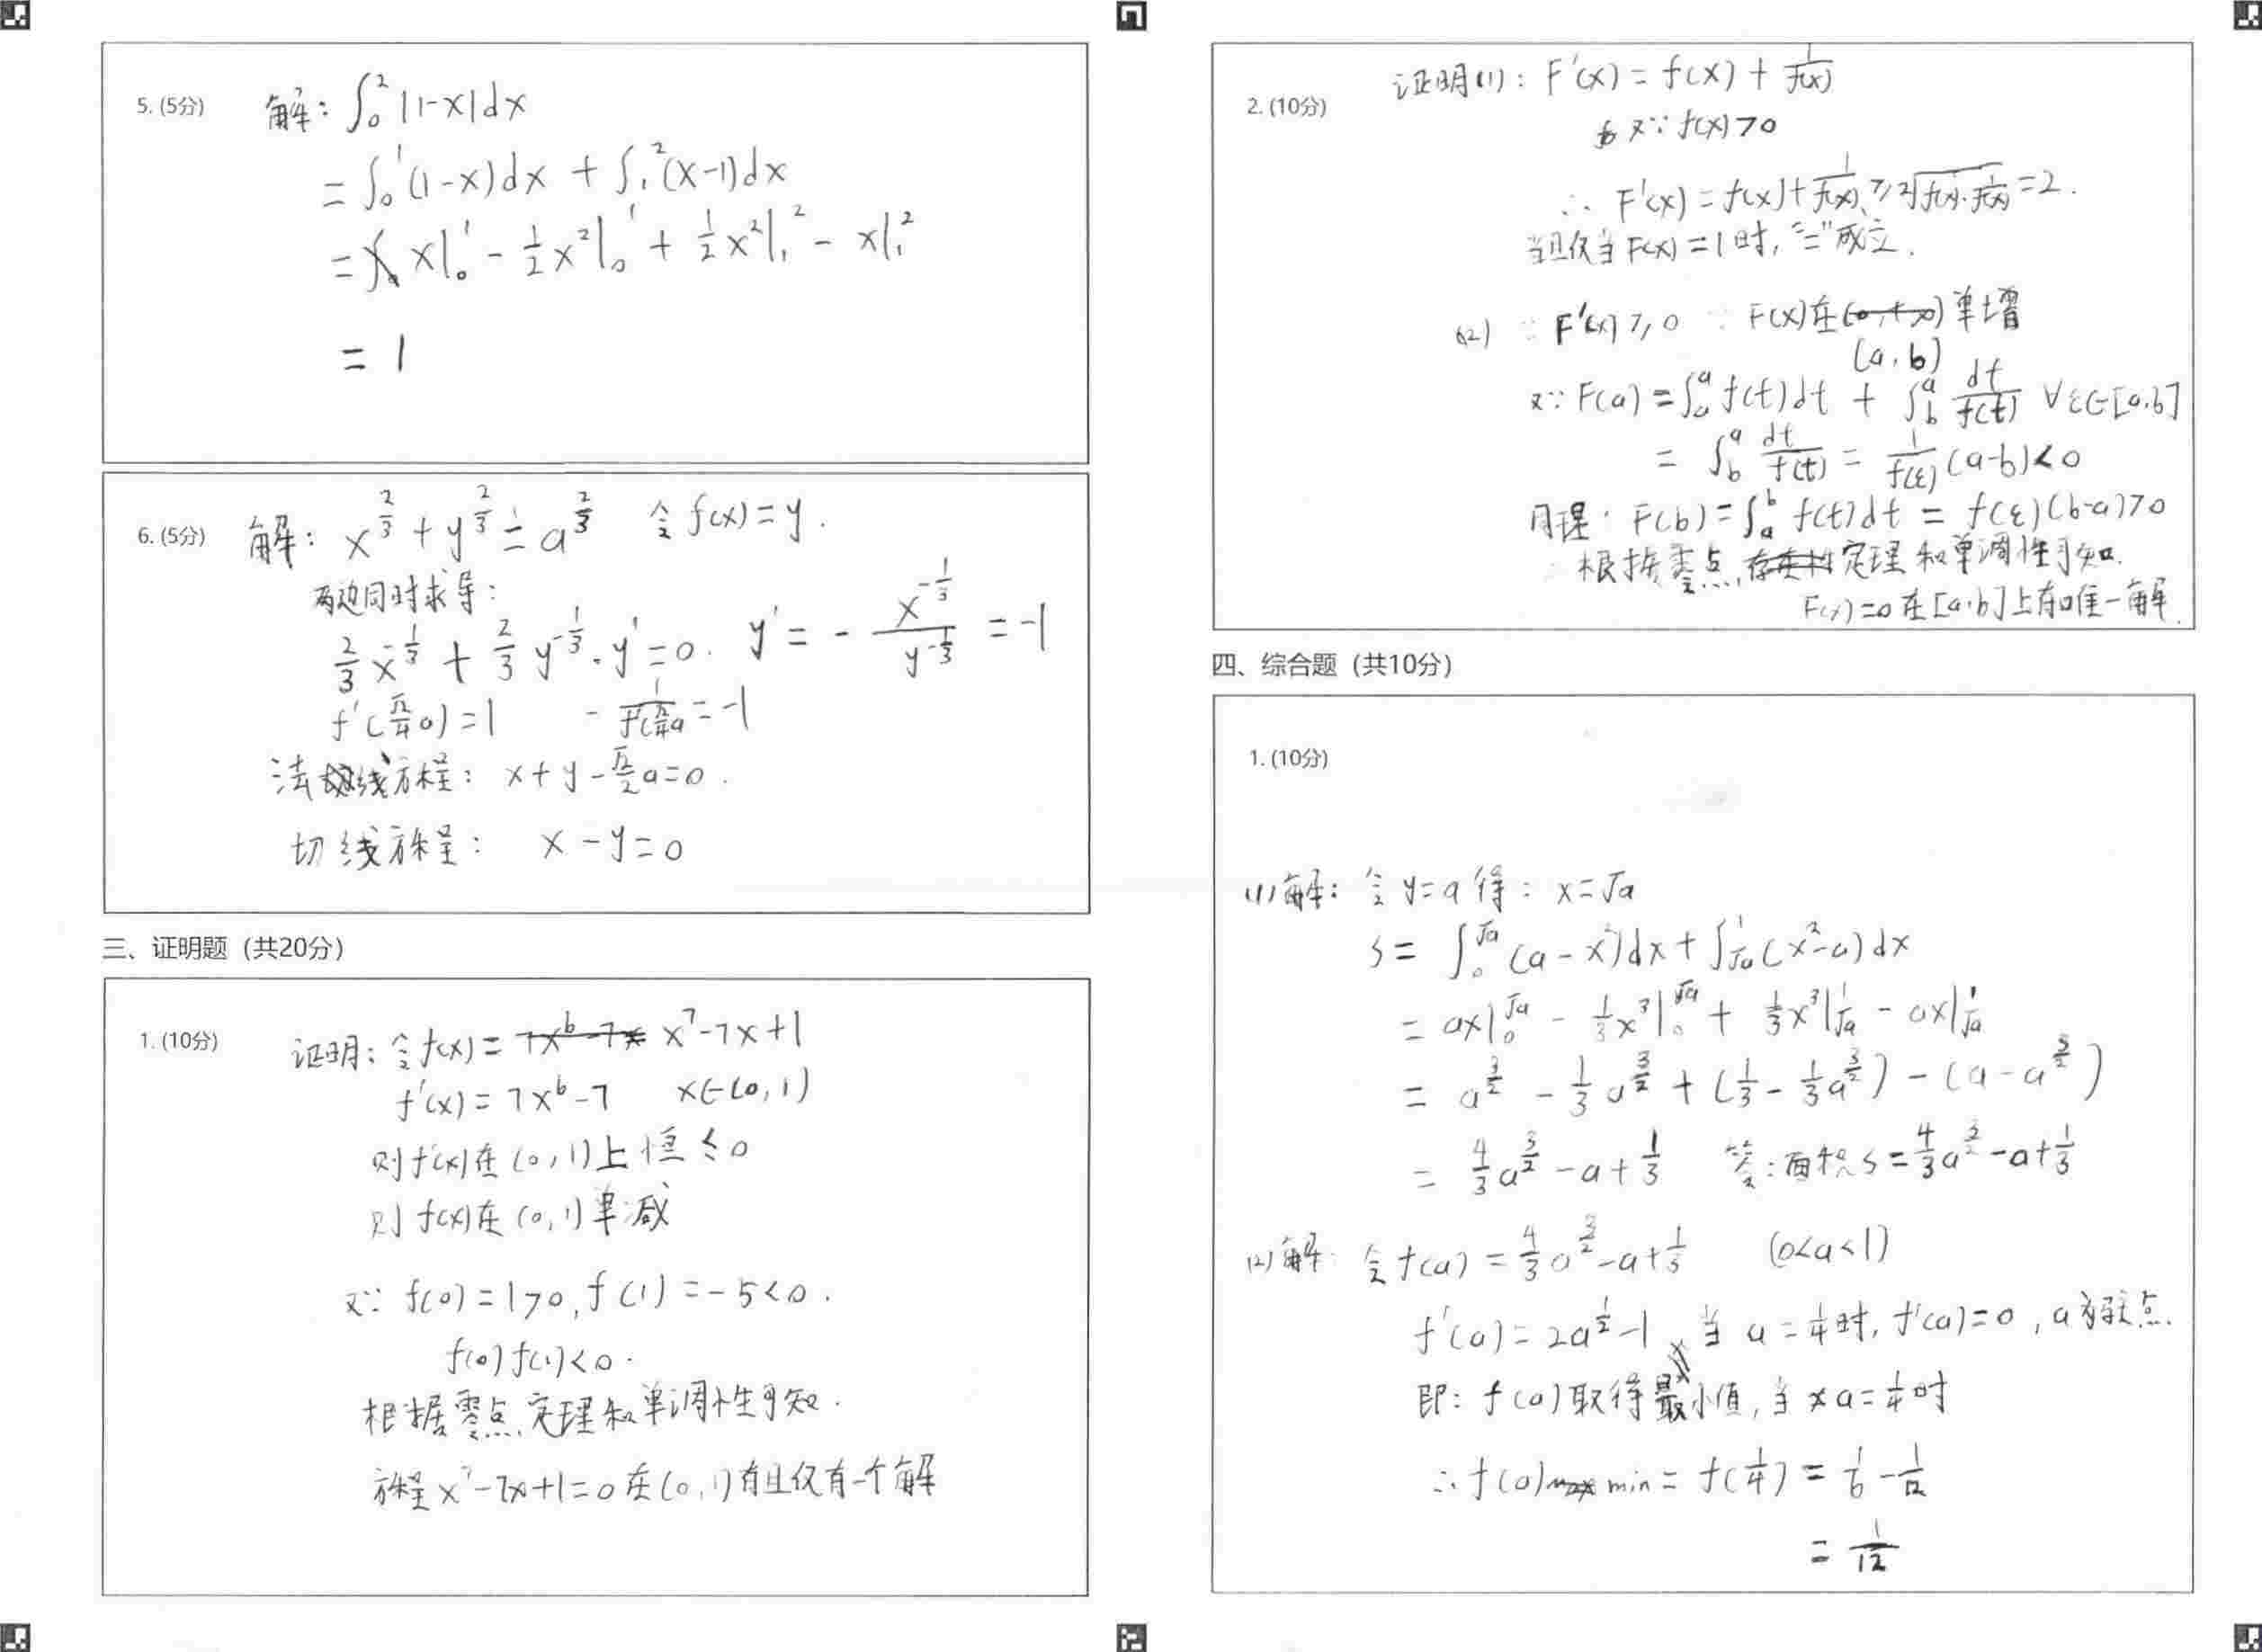 5. (5分)
解: ∫₀² |1-x|dx
= ∫₀¹ (1-x)dx + ∫₁² (x-1)dx
= x|₀¹ - 1/2 x²|₀¹ + 1/2 x²|₁² - x|₁²
= 1
6. (5分)
解: x^(2/3) + y^(2/3) = a^(2/3) 令 f(x) = y.
两边同时求导:
2/3 x^(-1/3) + 2/3 y^(-1/3) · y' = 0. y' = - x^(-1/3) / y^(-1/3) = -1
f'(√2/4 a) = 1 - 1/f'(√2/4 a = -1
法线方程: x + y - √2/2 a = 0.
切线方程: x - y = 0
三、证明题（共20分）
1. (10分)
证明: 令f(x) = x⁷-7x+1
f'(x) = 7x⁶-7 x∈(0,1)
则f'(x)在(0,1)上恒≤0
则 f(x)在(0,1)单减
又∵ f(0) = 1>0, f(1) = -5<0.
f(0)f(1)<0.
根据零点定理和单调性可知.
方程x⁷-7x+1=0在(0,1)有且仅有一个解
2. (10分)
证明(1): F'(x) = f(x) + 1/f(x)
又∵ f(x)>0
∴ F'(x) = f(x) + 1/f(x) ≥ 2√(f(x)·1/f(x)) = 2.
当且仅当F(x) = 1时, "="成立.
(2) ∵ F'(x) ≥ 0 ∵ F(x)在 单增
(a, b)
又∵ F(a) = ∫ₐᵃ f(t)dt + ∫_b^a dt/f(t) ∀ε∈[a,b]
= ∫_b^a dt/f(t) = 1/f(ε) (a-b)<0
同理: F(b) = ∫ₐᵇ f(t)dt = f(ε)(b-a)>0
根据零点定理和单调性可知.
F(x)=0在[a,b]上有唯一解.
四、综合题（共10分）
1. (10分)
(1)解: 令 y=a 得: x=√a
S = ∫₀^√a (a-x²)dx + ∫_√a^1 (x²-a)dx
= ax|₀^√a - 1/3 x³|₀^√a + 1/3 x³|_√a^1 - ax|_√a^1
= a^(3/2) - 1/3 a^(3/2) + (1/3 - 1/3 a^(3/2)) - (a - a^(3/2))
= 4/3 a^(3/2) - a + 1/3 答: 面积S = 4/3 a^(3/2) - a + 1/3
(2)解: 令f(a) = 4/3 a^(3/2) - a + 1/3 (0<a<1)
f'(a) = 2a^(1/2) - 1 当 a = 1/4时, f'(a)=0, a为驻点.
即: f(a)取得最小值, 当 a=1/4时
∴ f(a) min = f(1/4) = 1/6 - 1/12
= 1/12